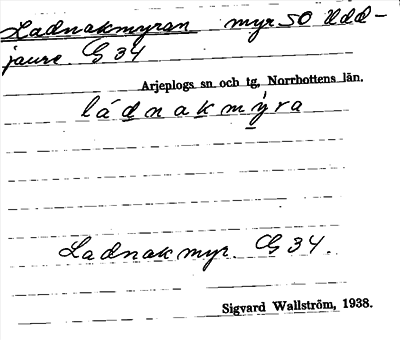 Ladnakmyran myr SO Udd-
jaure. G 34
Arjeplogs sn. och tg, Norrbottens län.
ládnakmýra
Ladnakmyr. G 34.
Sigvard Wallström, 1938.